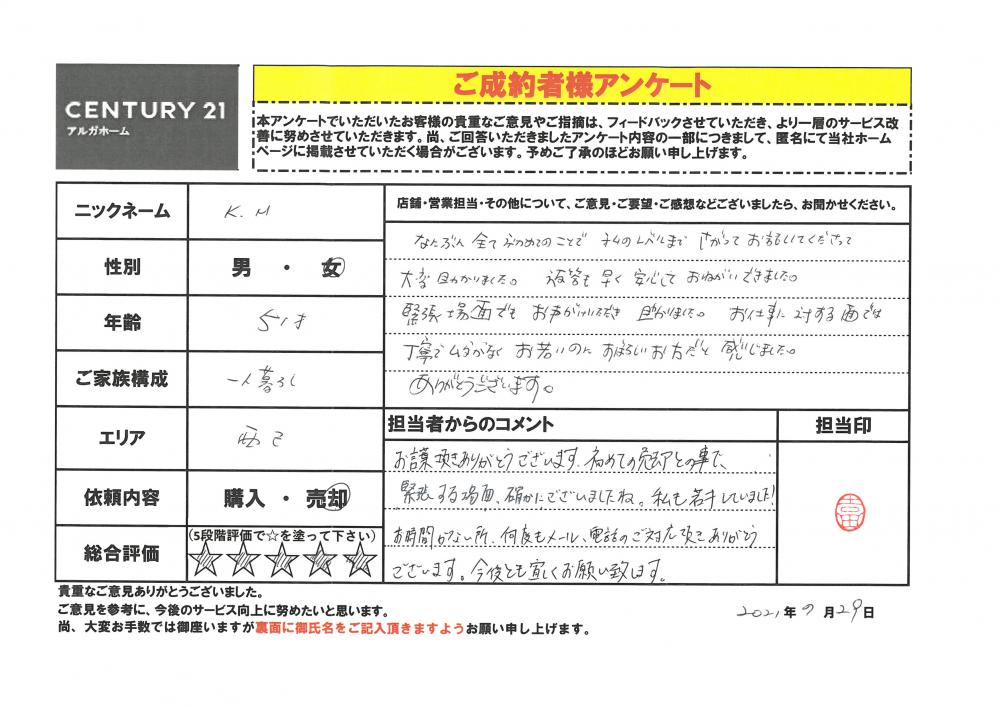 CENTURY 21
アルガホーム
ご成約者様アンケート
本アンケートでいただいたお客様の貴重なご意見やご指摘は、フィードバックさせていただき、より一層のサービス改
善に努めさせていただきます。尚、ご回答いただきましたアンケート内容の一部につきまして、匿名にて当社ホーム
ページに掲載させていただく場合がございます。予めご了承のほどお願い申し上げます。
ニックネーム
K.M
性別
男 ・ 女
年齢
51才
ご家族構成
一人暮らし
エリア
依頼内容
購入 ・ 売却
総合評価
(5段階評価で☆を塗って下さい)
店舗・営業担当・その他について、ご意見・ご要望・ご感想などございましたら、お聞かせください。
なにぶん 全て 初めてのことで 私のレベルまで さがって お話ししてくださって
大変 助かりました。 返答も 早く 安心して おねがいできました。
緊張場面でも お声がけいただき 助かりました。 お仕事に 対する 面では
丁寧で ムダがなく お若いのに すばらしい お方だと 感じました。
ありがとうございます。
担当者からのコメント
お言葉頂きありがとうございます。初めての売却との事で、
緊張する場面、確かにございましたね。私も若干していました!
お時間がない所、何度もメール、電話のご対応頂きありがとう
ございます。今後とも宜しくお願い致します。
担当印
貴重なご意見ありがとうございました。
ご意見を参考に、今後のサービス向上に努めたいと思います。
尚、大変お手数では御座いますが裏面に御氏名をご記入頂きますようお願い申し上げます。
2021年 9月 29日